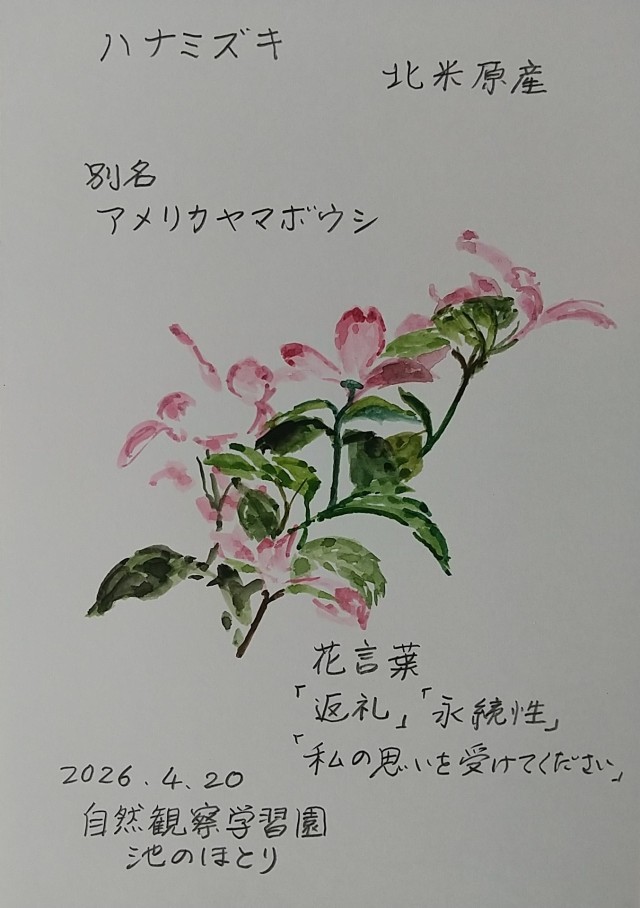 ハナミズキ
北米原産
別名
アメリカヤマボウシ
花言葉
「返礼」「永続性」
「私の思いを受けてください」
2026.4.20
自然観察学習園
池のほとり